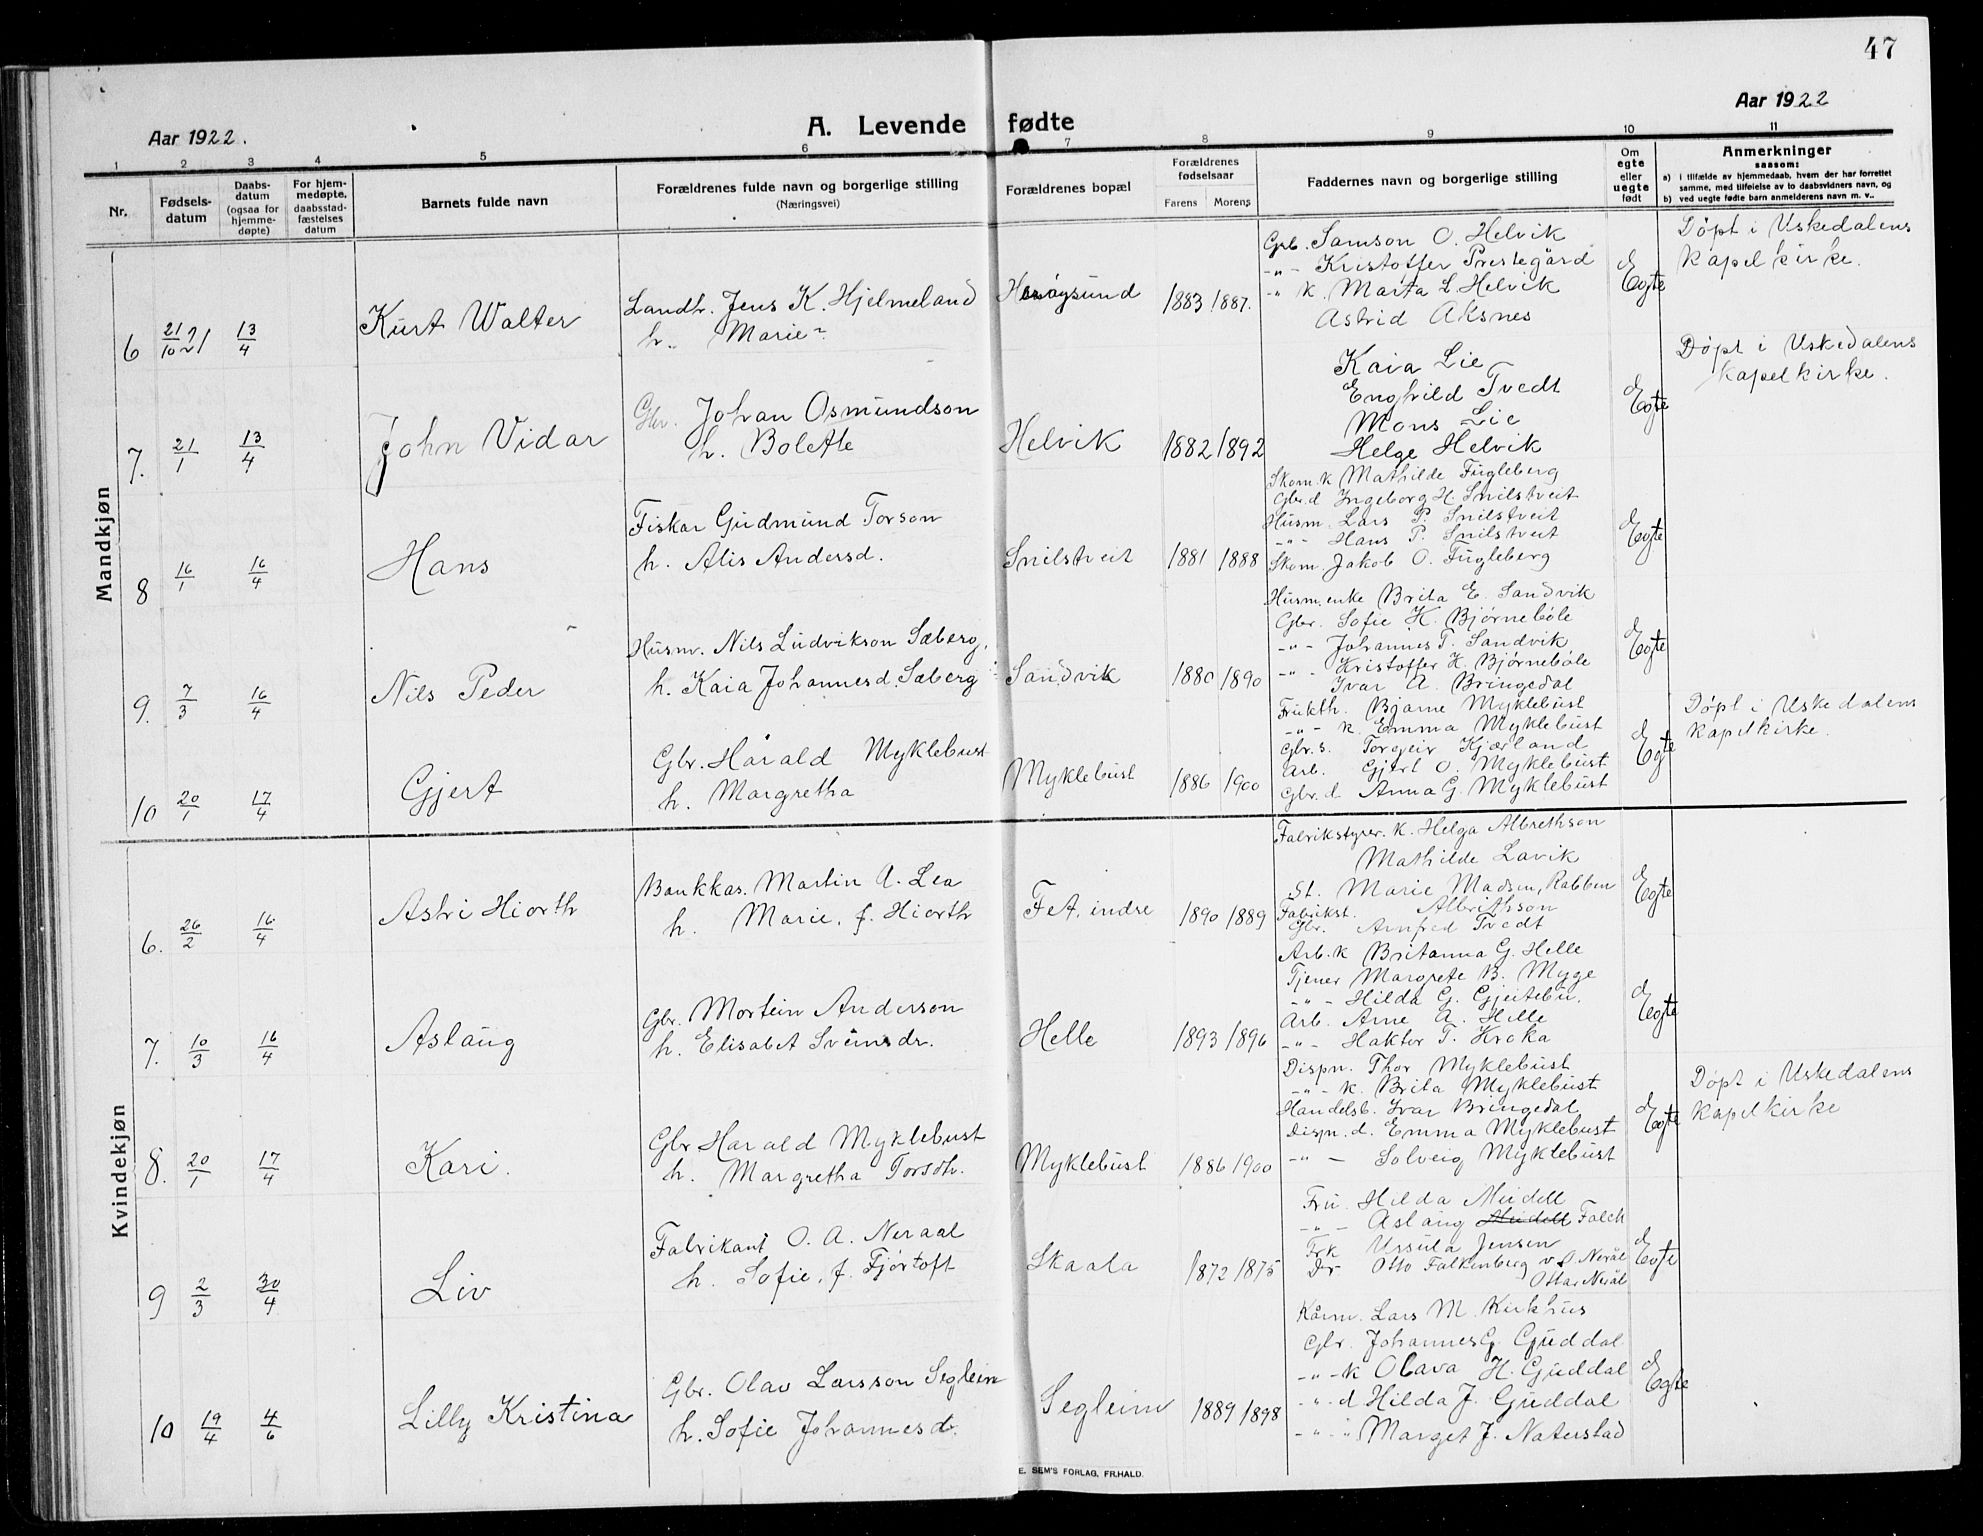 47
Aar 1922.
A. Levende fødte
Aar 1922
1 2 3 4 5 6 7 8 9 10 11
Nr.
Fødsels-
datum
Daabs-
datum
(ogsaa for
hjemme-
døpte)
For hjem-
medøpte,
daabsstad-
fæstelses
datum
Barnets fulde navn
Forældrenes fulde navn og borgerlige stilling
(Næringsvei)
Forældrenes bopæl
Forældrenes
fødselsaar
Farens Morens
Faddernes navn og borgerlige stilling
Om
egte
eller
uegte
født
Anmerkninger
saasom:
a) i tilfælde av hjemmedaab, hvem der har forrettet
samme, med tilføielse av to daabsvidners navn, og
b) ved uegte fødte barn anmelderens navn m. v..
Mandkjøn
6 21/10 21 13/4 Kurt Walter
Landh. Jens K. Hjelmeland
h. " Marie "
Herøysund 1883 1887.
Gbr. Samson O. Helvik
-"- Kristoffer Prestegård
-" k. Marta L. Helvik
Astrid Aksnes
Egte
Døpt i Uskedalens
kapelkirke.
7. 21/1 13/4 John Vidar
Gbr. Johan Osmundson
h. Bolette
Helvik 1882 1892
Kaia Lie
Enghild Tvedt
Mons Lie
Helge Helvik
Egte
Døpt i Uskedalens
kapelkirke.
8 16/1 16/4 Hans
Fiskar Gudmund Torson
h. Alis Andersd.
Snilstveit 1881 1888
Skom. k Mathilde Fugleberg
Gbr. d Ingeborg H. Snilstveit
Husm. Lars P. Snilstveit
-"- Hans P. Snilstveit
Skom. Jakob O. Fugleberg
Egte
9. 7/3 16/4 Nils Peder
Husm. Nils Ludvikson Sæberg,
h. Kaia Johannesd. Sæberg
Sandvik 1880 1890
Husm. enke Brita E. Sandvik
Gbr. Sofie K. Bjørnebøle
-"- Johannes T. Sandvik
-"- Kristoffer K. Bjørnebøle
Ivar A. Bringedal
Egte
10 20/1 17/4 Gjert
Gbr. Harald Myklebust
h. Margretha
Myklebust 1886 1900
Frukth. Bjarne Myklebust
-"- k. Emma Myklebust
Gbr. s. Torgeir Kjærland
Arb. Gjert O. Myklebust
Gbr. d Anna G. Myklebust
Egte
Døpt i Uskedalens
kapelkirke.
Kvindekjøn
6. 26/2 16/4 Astri Hiorth
Bankkas. Martin A. Lea
h. Marie, f. Hiorth
Fet, indre 1890 1889
Fabrikstyrer. k. Helga Albrethson
Mathilde Lavik
St. Marie Madsen, Rabben
Fabrikst. Albrithson
Gbr. Arnfred Tvedt
Egte
7. 10/3 16/4 Aslaug
Gbr. Mortein Anderson
h. Elisabet Sveinsdr.
Helle 1893 1896
Arb. k Britanna G. Helle
Tjener Margrete B. Myge
-"- Hilda G. Gjeitebu.
Arb. Arne A. Helle
-"- Haktor T. Kroka
Egte
8. 20/1 17/4 Kari.
Gbr Harald Myklebust
h. Margretha Torsdtr.
Myklebust 1886 1900
Dispn. Thor Myklebust
-"- k. Brita Myklebust
Handelsb. Ivar Bringedal
Dispn. d. Emma Myklebust
-"- Solveig Myklebust
Egte
Døpt i Uskedalens
kapelkirke
9 2/3 30/4 Liv
Fabrikant O. A. Neraal
h. Sofie, f. Fjørtoft
Skaala 1872 1875
Fru. Hilda Meidell
-"- Aslaug Meidell Falch
Frk Ursula Jensen
Dr Otto Falkenberg v. d. Nerål
Ottar Nerål
Egte
10 19/4 4/6 Lilly Kristina
Gbr. Olav Larsson Segleim
h. Sofie Johannesd.
Segleim 1889 1898
Kårm. Lars M. Kirkhus
Gbr. Johannes G. Guddal
-"- k Olava H. Guddal
-"- d Hilda J. Guddal
-"- " Marget J. Naterstad
Egte
E. SEM'S FORLAG, FR.HALD.